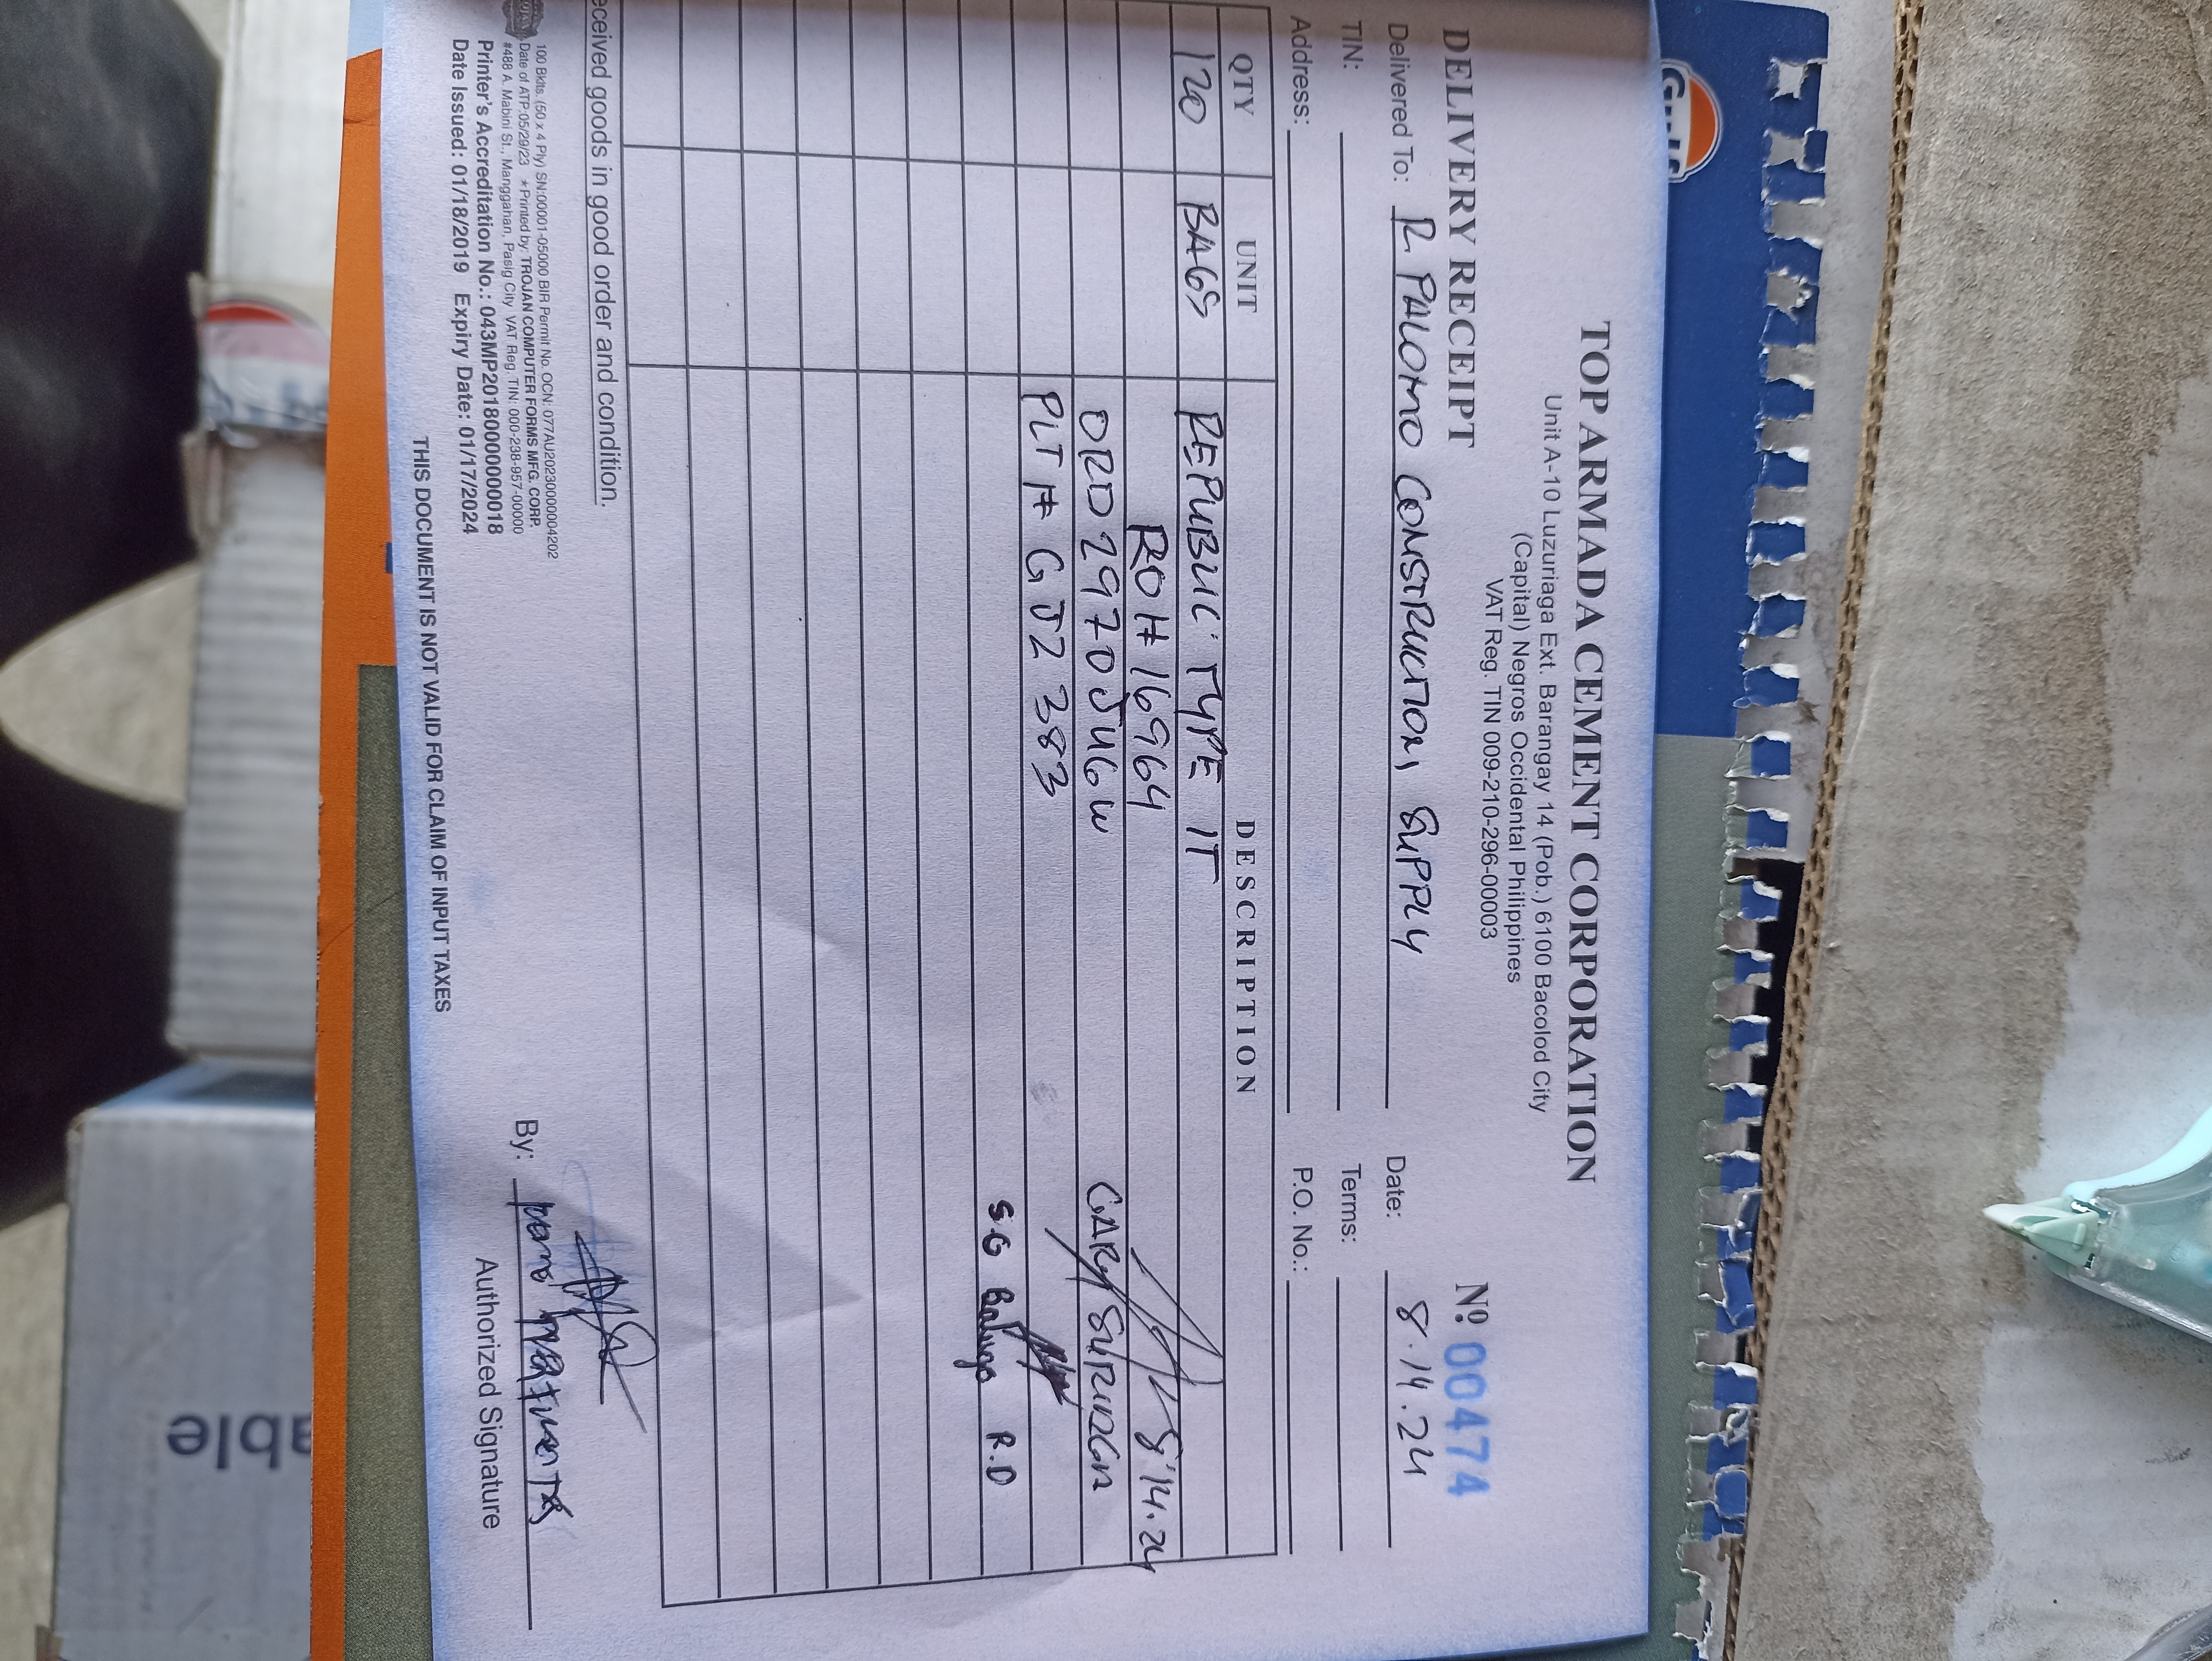 TOP ARMADA CEMENT CORPORATION
Unit A-10 Luzuriaga Ext. Barangay 14 (Pob.) 6100 Bacolod City
(Capital) Negros Occidental Philippines
VAT Reg. TIN 009-210-296-00003
DELIVERY RECEIPT
Nº 00474
Delivered To: R. PALOMO CONSTRUCTION SUPPLY
Date: 8.14.24
TIN:
Terms:
Address:
P.O. No.:
QTY UNIT DESCRIPTION
120 BAGS REPUBLIC TYPE 1T
RO# 16964 8.14.24
ORD 29720JUGW GARY
PLT # GJZ 383
S.G R.D
eceived goods in good order and condition.
100 Bklts. (50 x 4 Ply) SN:00001-05000 BIR Permit No. OCN: 077AU20230000004202
Date of ATP:05/29/23 *Printed by: TROJAN COMPUTER FORMS MFG. CORP.
#488 A. Mabini St., Manggahan, Pasig City VAT Reg. TIN: 000-238-957-00000
Printer's Accreditation No.: 043MP20180000000018
Date Issued: 01/18/2019 Expiry Date: 01/17/2024
By:
Authorized Signature
THIS DOCUMENT IS NOT VALID FOR CLAIM OF INPUT TAXES
able